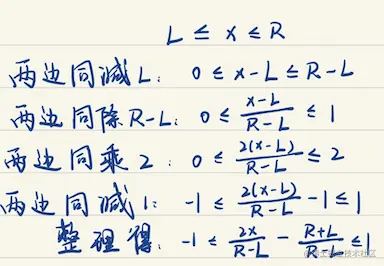 L ≤ x ≤ R
两边同减L: 0 ≤ x-L ≤ R-L
两边同除R-L: 0 ≤ \frac{x-L}{R-L} ≤ 1
两边同乘2: 0 ≤ \frac{2(x-L)}{R-L} ≤ 2
两边同减1: -1 ≤ \frac{2(x-L)}{R-L} - 1 ≤ 1
整理得: -1 ≤ \frac{2x}{R-L} - \frac{R+L}{R-L} ≤ 1